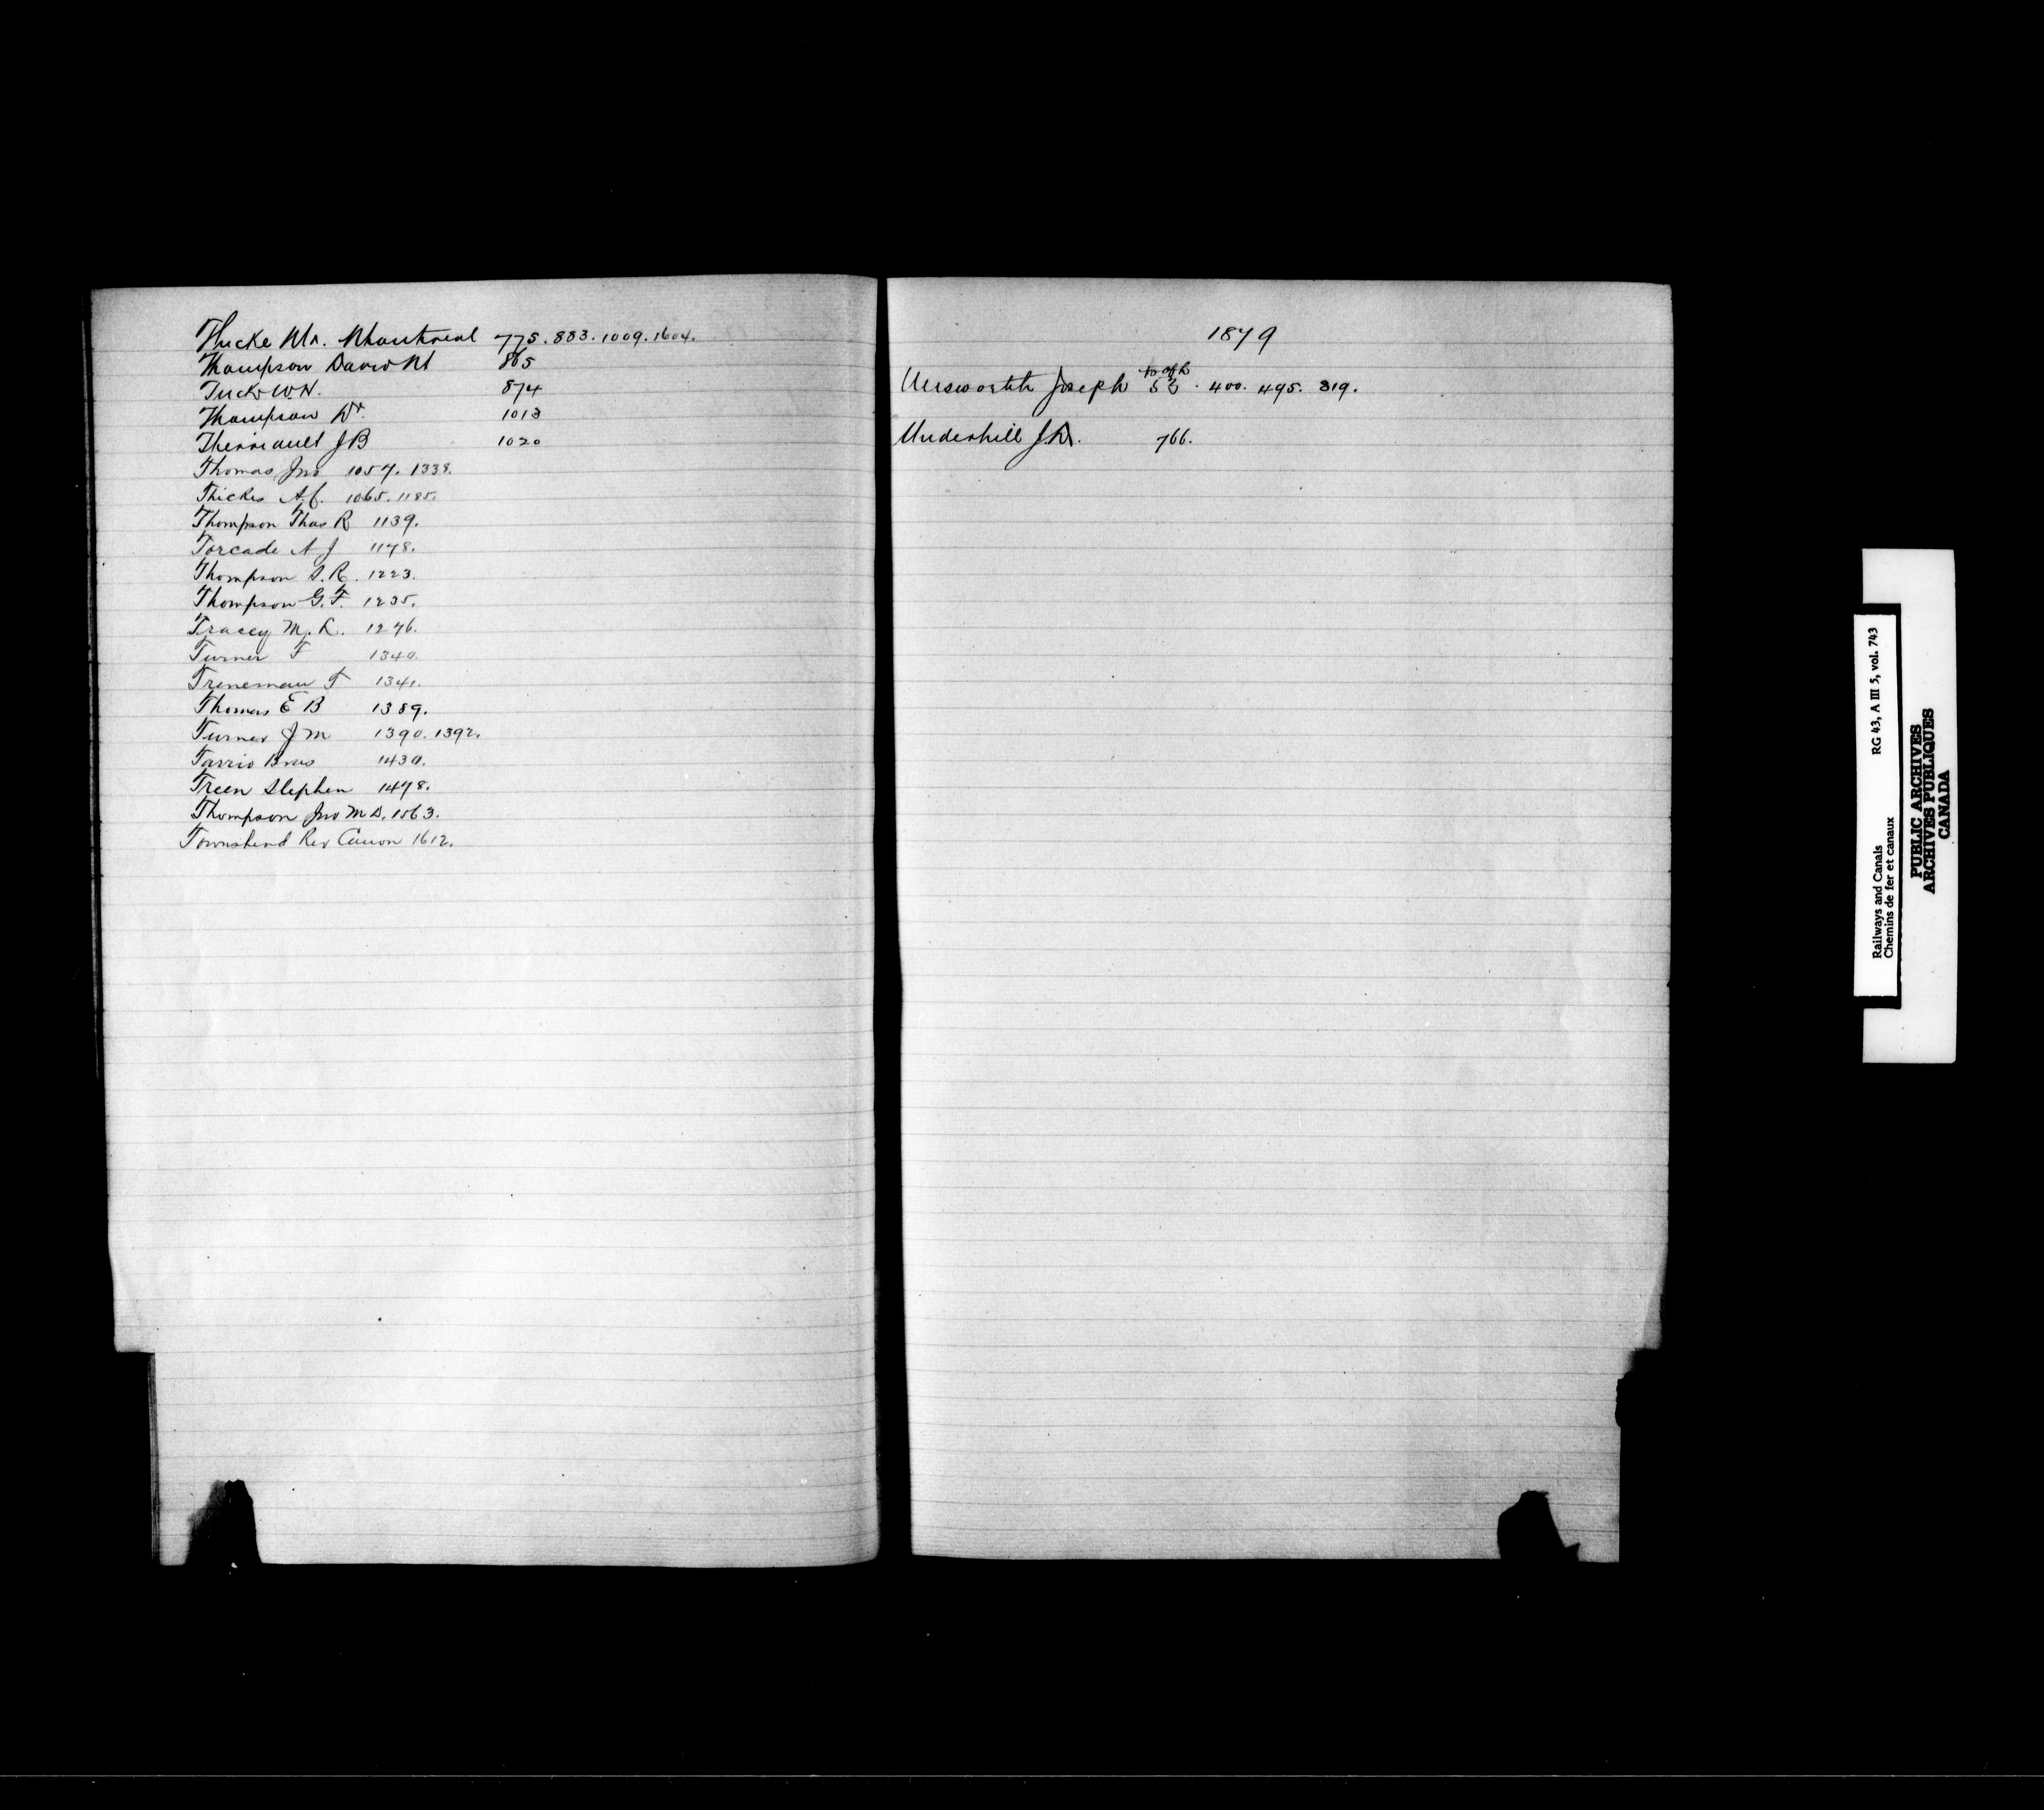 Thicke Mr. Montreal 775. 883. 1009. 1604.
Thompson David M 865
Tuck W. H. 874
Thompson Dr. 1013
Therriault J B 1020
Thomas Jno 1057. 1338.
Thickes A. C. 1065. 1185.
Thompson Thos R 1139.
Torcade A J 1178.
Thompson S. R. 1223.
Thompson G. F. 1235.
Tracey M. L. 1276.
Turner F 1340.
Treneman T 1341.
Thomas E B 1389.
Turner J M 1390. 1392.
Tarrio Bros 1430.
Treen Stephen 1478.
Thompson Jno M D. 1563.
Townshend Rev Canon 1612.
1879
Unsworth Joseph 52. 400. 495. 819.
Underhill J. 766.
Railways and Canals RG 43, A III 5, vol. 743
Chemins de fer et canaux
PUBLIC ARCHIVES
ARCHIVES PUBLIQUES
CANADA